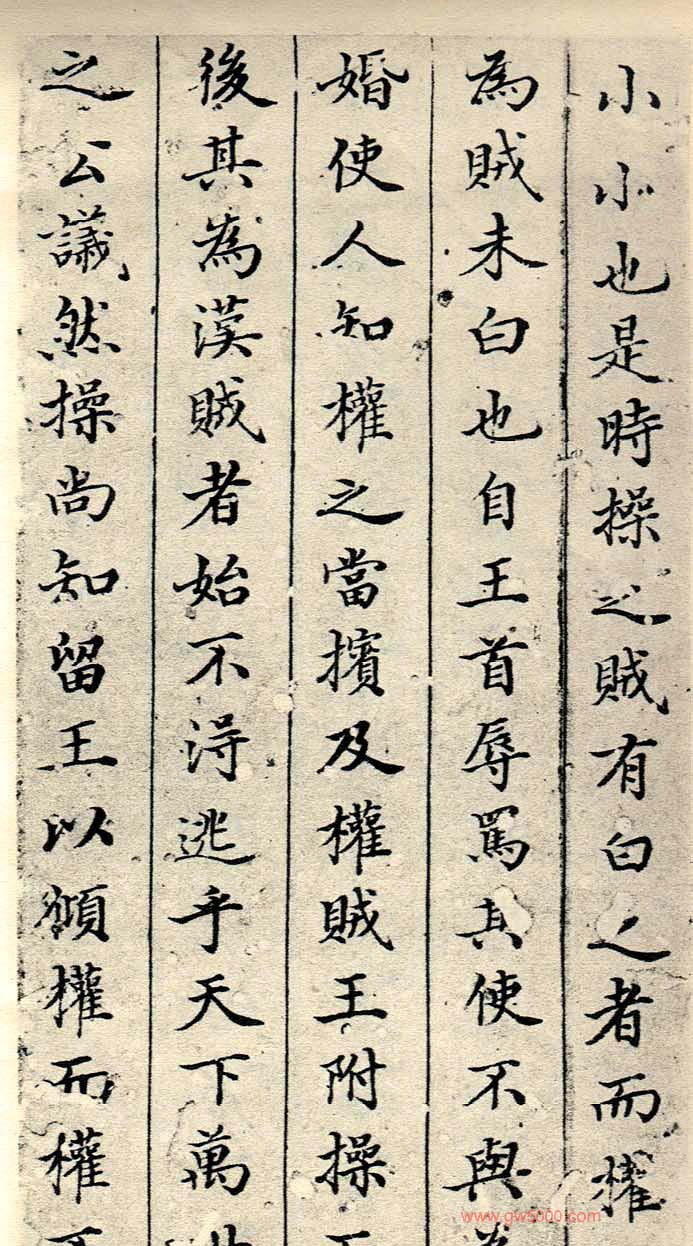 小小也是時操之賊有白之者而權
為賊未白也自王首辱罵其使不與
婚使人知權之當擯及權賊王附操
後其為漢賊者始不得逃乎天下萬
之公議然操尚知留王以傾權而權
www.gw5000.com